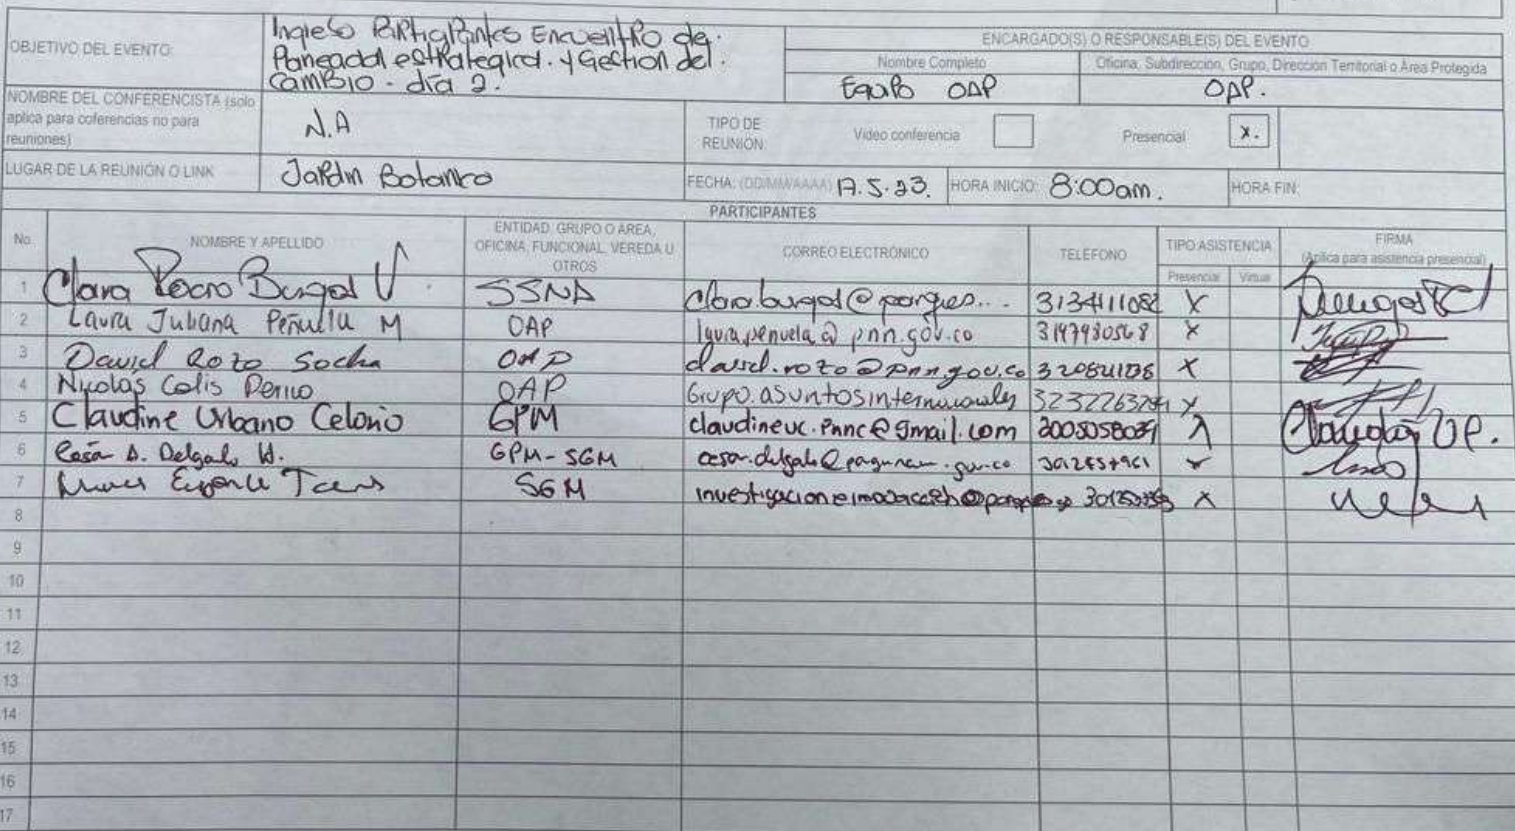 OBJETIVO DEL EVENTO:
Ingreso Participantes Encuentro de
Planeación estrategica. y Gestion del
Cambio - día 2.
ENCARGADO(S) O RESPONSABLE(S) DEL EVENTO
Nombre Completo
Oficina, Subdirección, Grupo, Dirección Territorial o Área Protegida
Equipo OAP
OAP.
NOMBRE DEL CONFERENCISTA (solo
aplica para coferencias no para
reuniones)
N.A
TIPO DE
REUNIÓN:
Video conferencia
Presencial
x.
LUGAR DE LA REUNIÓN O LINK
Jardin Botanico
FECHA: (DD/MM/AAAA) 17.5.23.
HORA INICIO: 8:00am.
HORA FIN:
PARTICIPANTES
No
NOMBRE Y APELLIDO
ENTIDAD, GRUPO O ÁREA,
OFICINA, FUNCIONAL, VEREDA U
OTROS
CORREO ELECTRÓNICO
TELÉFONO
TIPO ASISTENCIA
Presencial Virtual
FIRMA
(Aplica para asistencia presencial)
1 Clara Rocio Burgos V SSNA @parques... 3134111082 X
2 Laura Juliana Peñuela M OAP laura.penuela@pnn.gov.co 3197980568 X
3 David Rozo Socha OAP david.rozo@pnn.gov.co X
4 Nicolas OAP Grupo.asuntosinternacionales X
5 Claudine Urbano Celorio GPM claudineuc.pnnc@gmail.com
6 Cesar A. Delgado H. GPM-SGM
7 SGM X
8
9
10
11
12
13
14
15
16
17